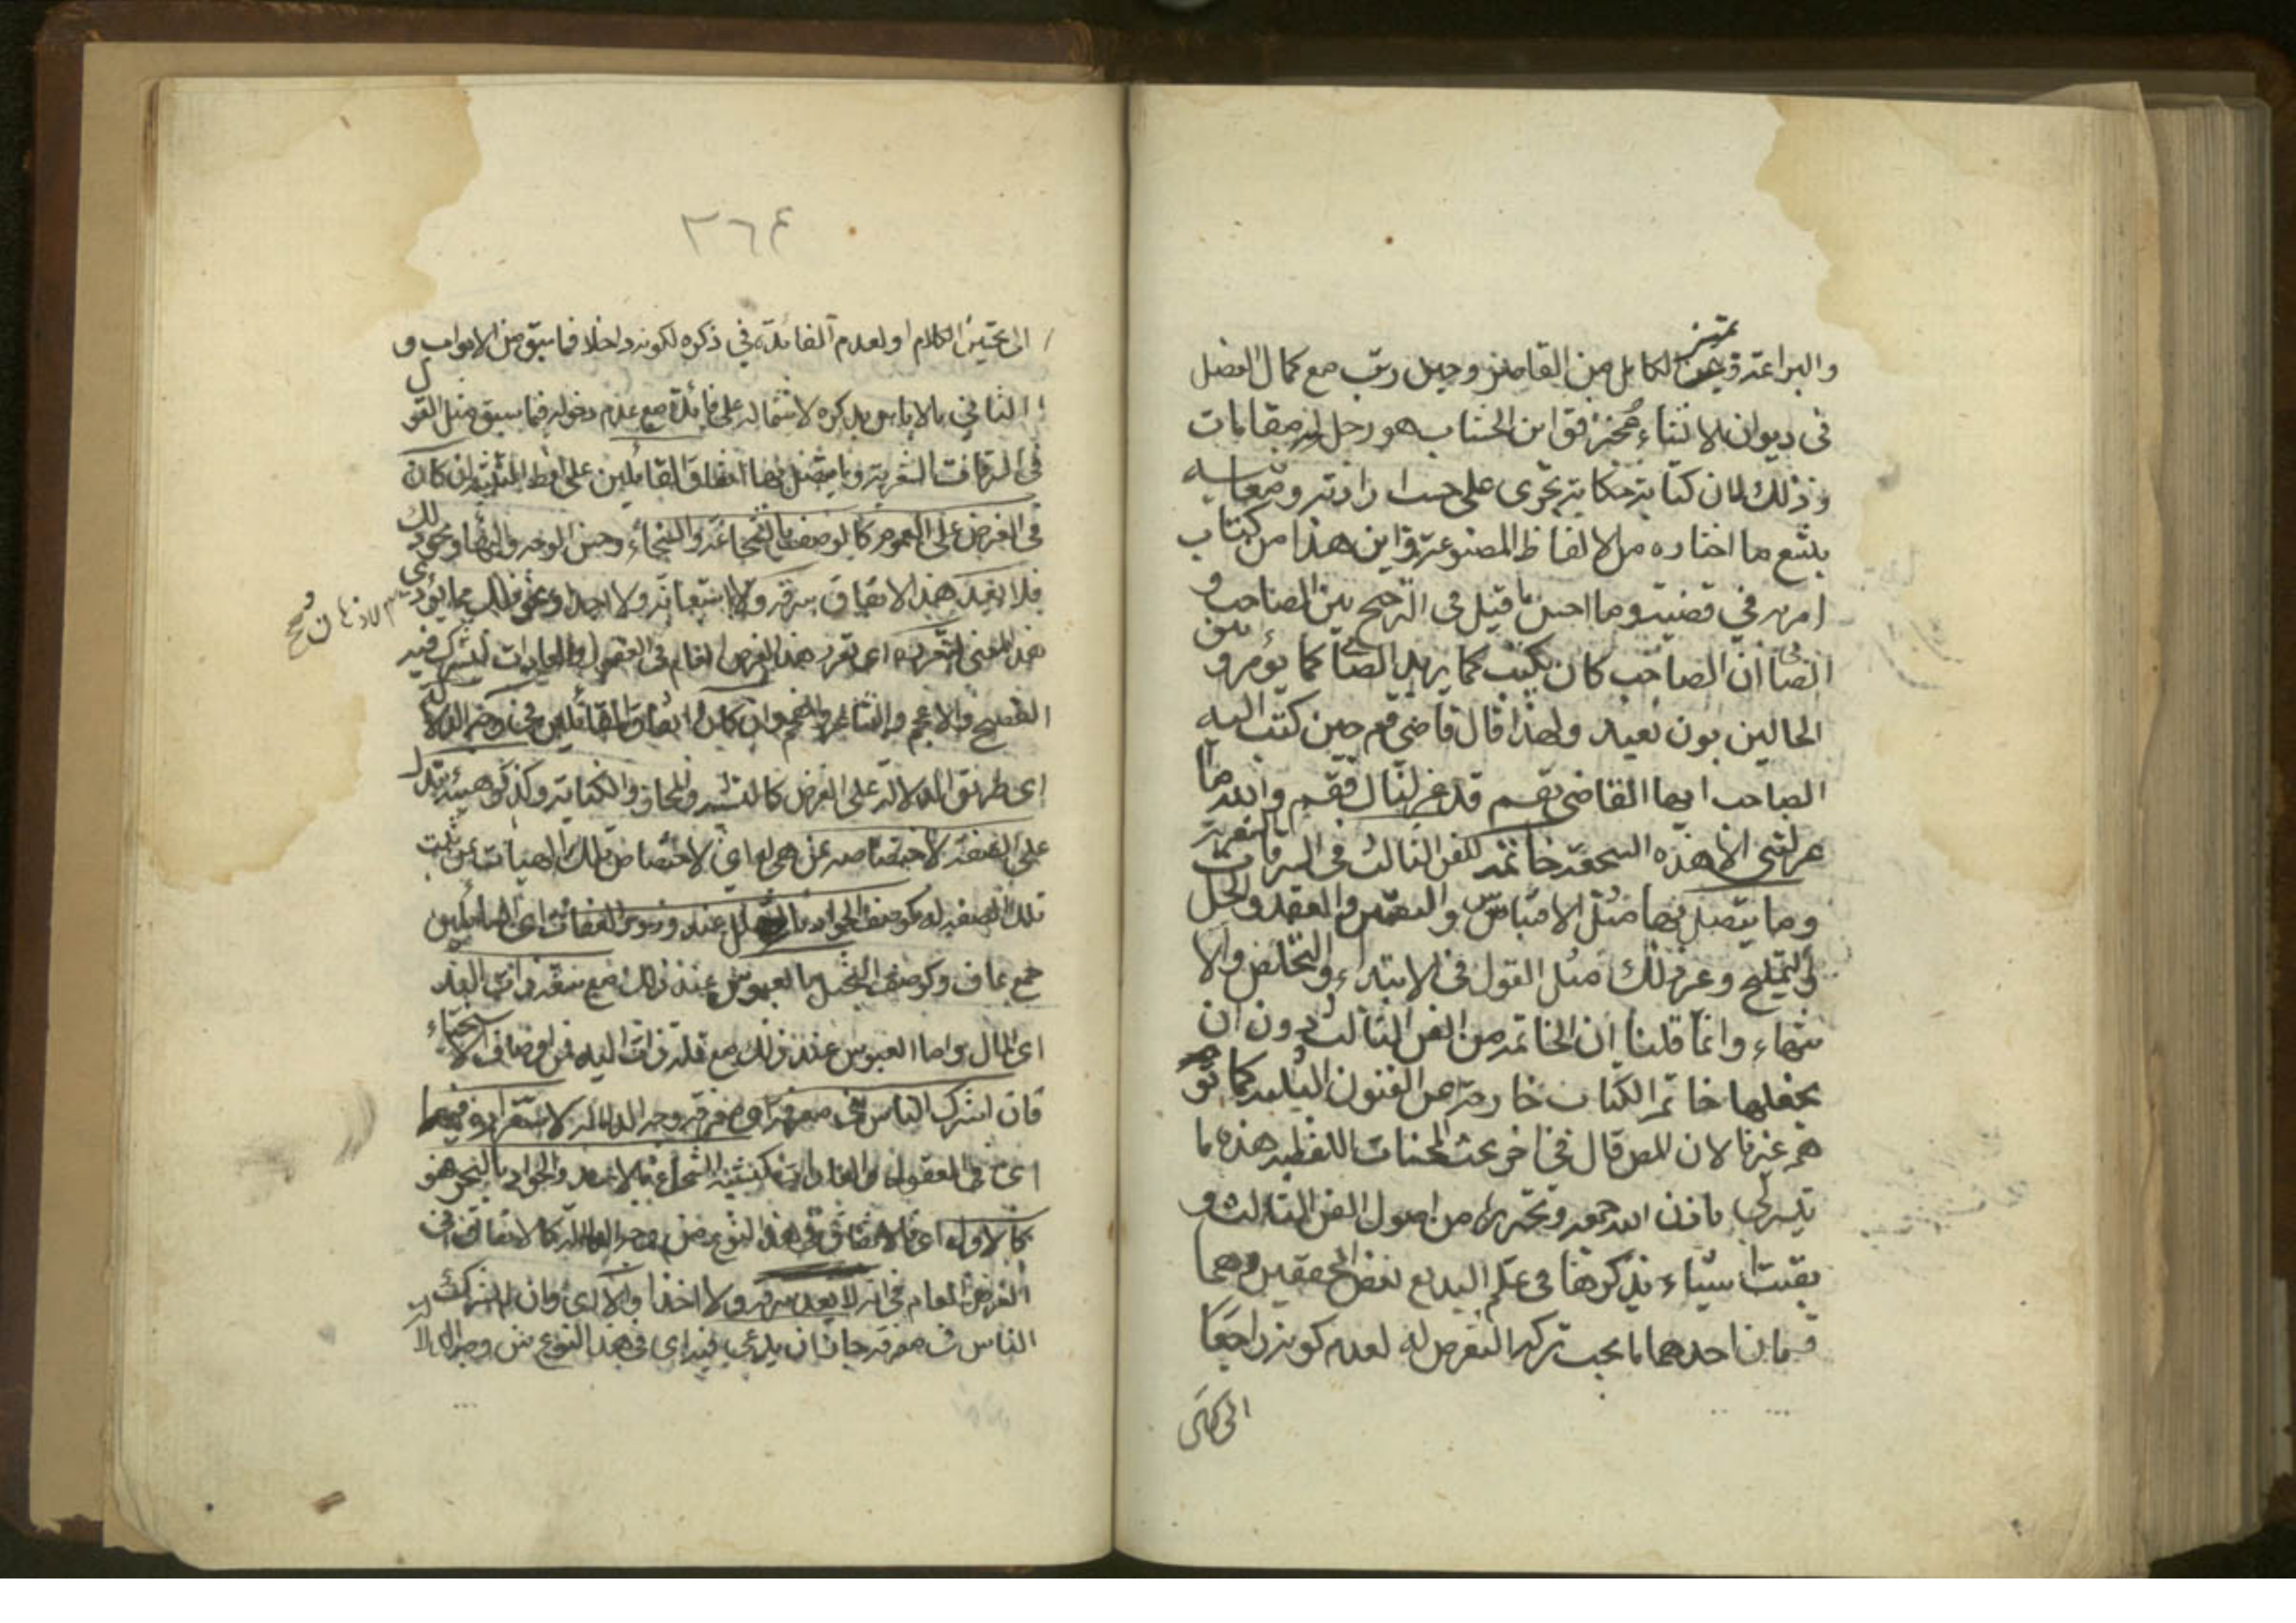 والبراعة وتميز الكامل من القاصر وحين رتب مع كمال الفضل
في ديوان الانشاء عجز فقال ابن الخشاب هو رجل له مقامات
وذلك لان كتابه حكاية تجري على حسب ارادته ومعانيه
يتبع ما اختاره من الالفاظ المصنوعة فاين هذا من كتاب
امر به في قضية وما احسن ما قيل في الترجيح بين الصاحب و
الصابي ان الصاحب كان يكتب كما يريد والصابي كما يؤمر وبين
الحالين بون بعيد ولهذا قال قاضي قم حين كتب اليه
الصاحب ايها القاضي بقم قد عزلناك فقم والله ما
عزلتني الا هذه السجعة خاتمة للفن الثالث في السرقات الشعرية
وما يتصل بها مثل الاقتباس والتضمين والعقد والحل
والتلميح وغير ذلك مثل القول في الابتداء والتخلص والا
نتهاء وانما قلنا ان الخاتمة من الفن الثالث دون ان
نجعلها خاتمة الكتاب خارجة عن الفنون الثلثة كما تو
هم غيرنا لان المص قال في اخر بحث المحسنات اللفظية هذه ما
تيسر لي باذن الله جمعه وتحريره من اصول الفن الثالث و
بقيت اشياء يذكرها في علم البديع بعض المحققين وهما
قسمان احدهما ما يجب ترك التعرض له لعدم كونه راجعا
٣٦٤
الى تحسين الكلام او لعدم الفائدة في ذكره لكونه داخلا فيما سبق من الابواب و
الثاني ما لا باس بذكره لاشتماله على فائدة مع عدم دخوله فيما سبق مثل القول
في السرقات الشعرية وما يتصل بها اتفاق القائلين على لفظ التثنية ان كان
في الغرض على العموم كالوصف بالشجاعة والسخاء وحسن الوجه والبهاء ونحو ذلك
فلا يعد هذا الاتفاق سرقة ولا استعانة ولا اخذا ونحو ذلك مما يؤدي
هذا المعنى لتقرره اى تقرر هذا الغرض العام في العقول والعادات يشترك فيه
الفصيح والاعجم والشاعر والمفحم وان كان اتفاق القائلين في وجه الدلالة
اى طريق الدلالة على الغرض كالتشبيه والمجاز والكناية وكذكر هيئات تدل
على الصفة لاختصاصها بمن هي له اى لاختصاص تلك الهيات بمن ثبت
تلك الصفة له كوصف الجواد بالتهلل عند ورود العفاة اى السائلين
جمع عاف وكوصف البخيل بالعبوس عند ذلك مع سعة ذات اليد
اى المال واما العبوس عند ذلك مع قلة ذات اليد فمن اوصاف الاسخياء
فان اشترك الناس في معرفته اى معرفة وجه الدلالة لاستقراره فيهما
اى في العقول والعادات كتشبيه الشجاع بالاسد والجواد بالبحر فهو
كالاول اى فالاتفاق في هذا النوع من وجه الدلالة كالاتفاق في
الغرض العام في انه لا يعد سرقة ولا اخذا والا اى وان لم يشترك
الناس في معرفته جاز ان يدعى فيه اى في هذا النوع من وجه الدلالة